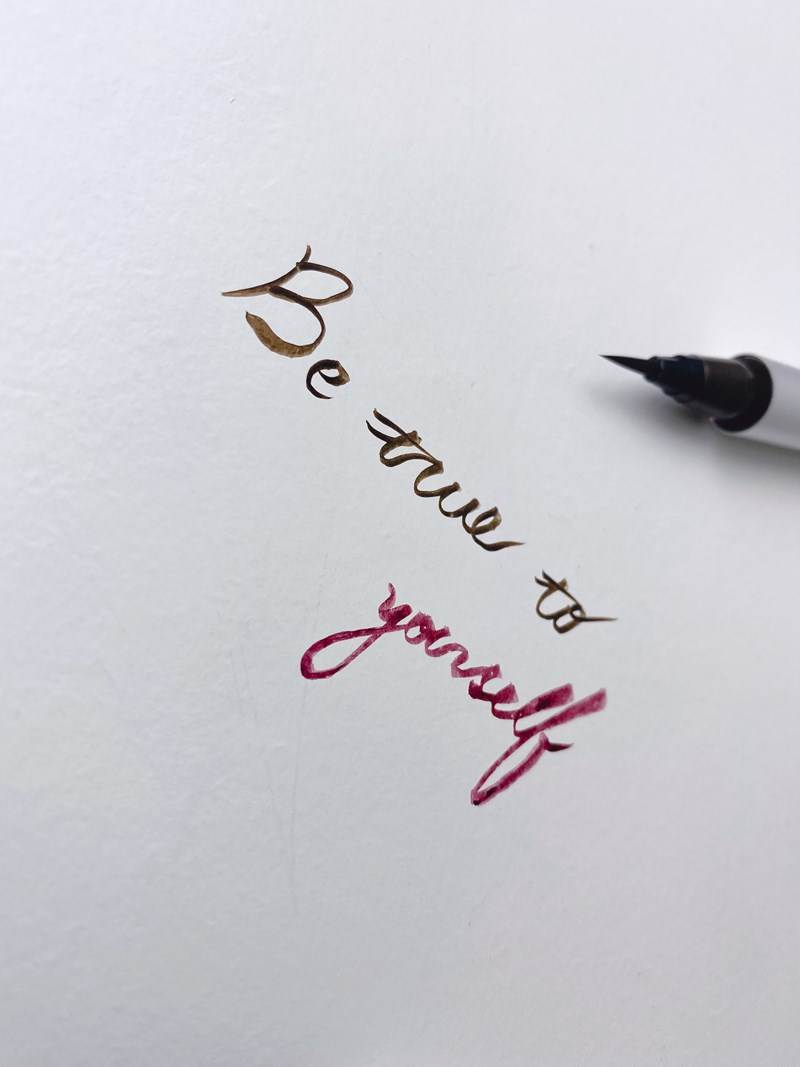 Be true to
yourself